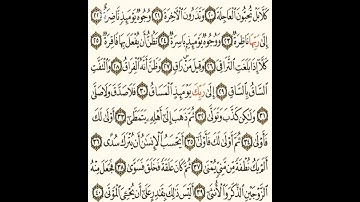 كَلَّا بَلْ تُحِبُّونَ ٱلْعَاجِلَةَ ٢٠ وَتَذَرُونَ ٱلْآخِرَةَ ٢١ وُجُوهٌ يَوْمَئِذٍ نَّاضِرَةٌ ٢٢
إِلَىٰ رَبِّهَا نَاظِرَةٌ ٢٣ وَوُجُوهٌ يَوْمَئِذٍۭ بَاسِرَةٌ ٢٤ تَظُنُّ أَن يُفْعَلَ بِهَا فَاقِرَةٌ ٢٥
كَلَّآ إِذَا بَلَغَتِ ٱلتَّرَاقِيَ ٢٦ وَقِيلَ مَنْ رَاقٍ ٢٧ وَظَنَّ أَنَّهُ ٱلْفِرَاقُ ٢٨ وَٱلْتَفَّتِ
ٱلسَّاقُ بِٱلسَّاقِ ٢٩ إِلَىٰ رَبِّكَ يَوْمَئِذٍ ٱلْمَسَاقُ ٣٠ فَلَا صَدَّقَ وَلَا صَلَّىٰ
٣١ وَلَٰكِن كَذَّبَ وَتَوَلَّىٰ ٣٢ ثُمَّ ذَهَبَ إِلَىٰٓ أَهْلِهِۦ يَتَمَطَّىٰٓ ٣٣ أَوْلَىٰ لَكَ
فَأَوْلَىٰ ٣٤ ثُمَّ أَوْلَىٰ لَكَ فَأَوْلَىٰٓ ٣٥ أَيَحْسَبُ ٱلْإِنسَٰنُ أَن يُتْرَكَ سُدًى ٣٦
أَلَمْ يَكُ نُطْفَةً مِّن مَّنِيٍّ يُمْنَىٰ ٣٧ ثُمَّ كَانَ عَلَقَةً فَخَلَقَ فَسَوَّىٰ ٣٨ فَجَعَلَ مِنْهُ
ٱلزَّوْجَيْنِ ٱلذَّكَرَ وَٱلْأُنثَىٰٓ ٣٩ أَلَيْسَ ذَٰلِكَ بِقَٰدِرٍ عَلَىٰٓ أَن يُحْـِۧيَ ٱلْمَوْتَىٰ ٤٠